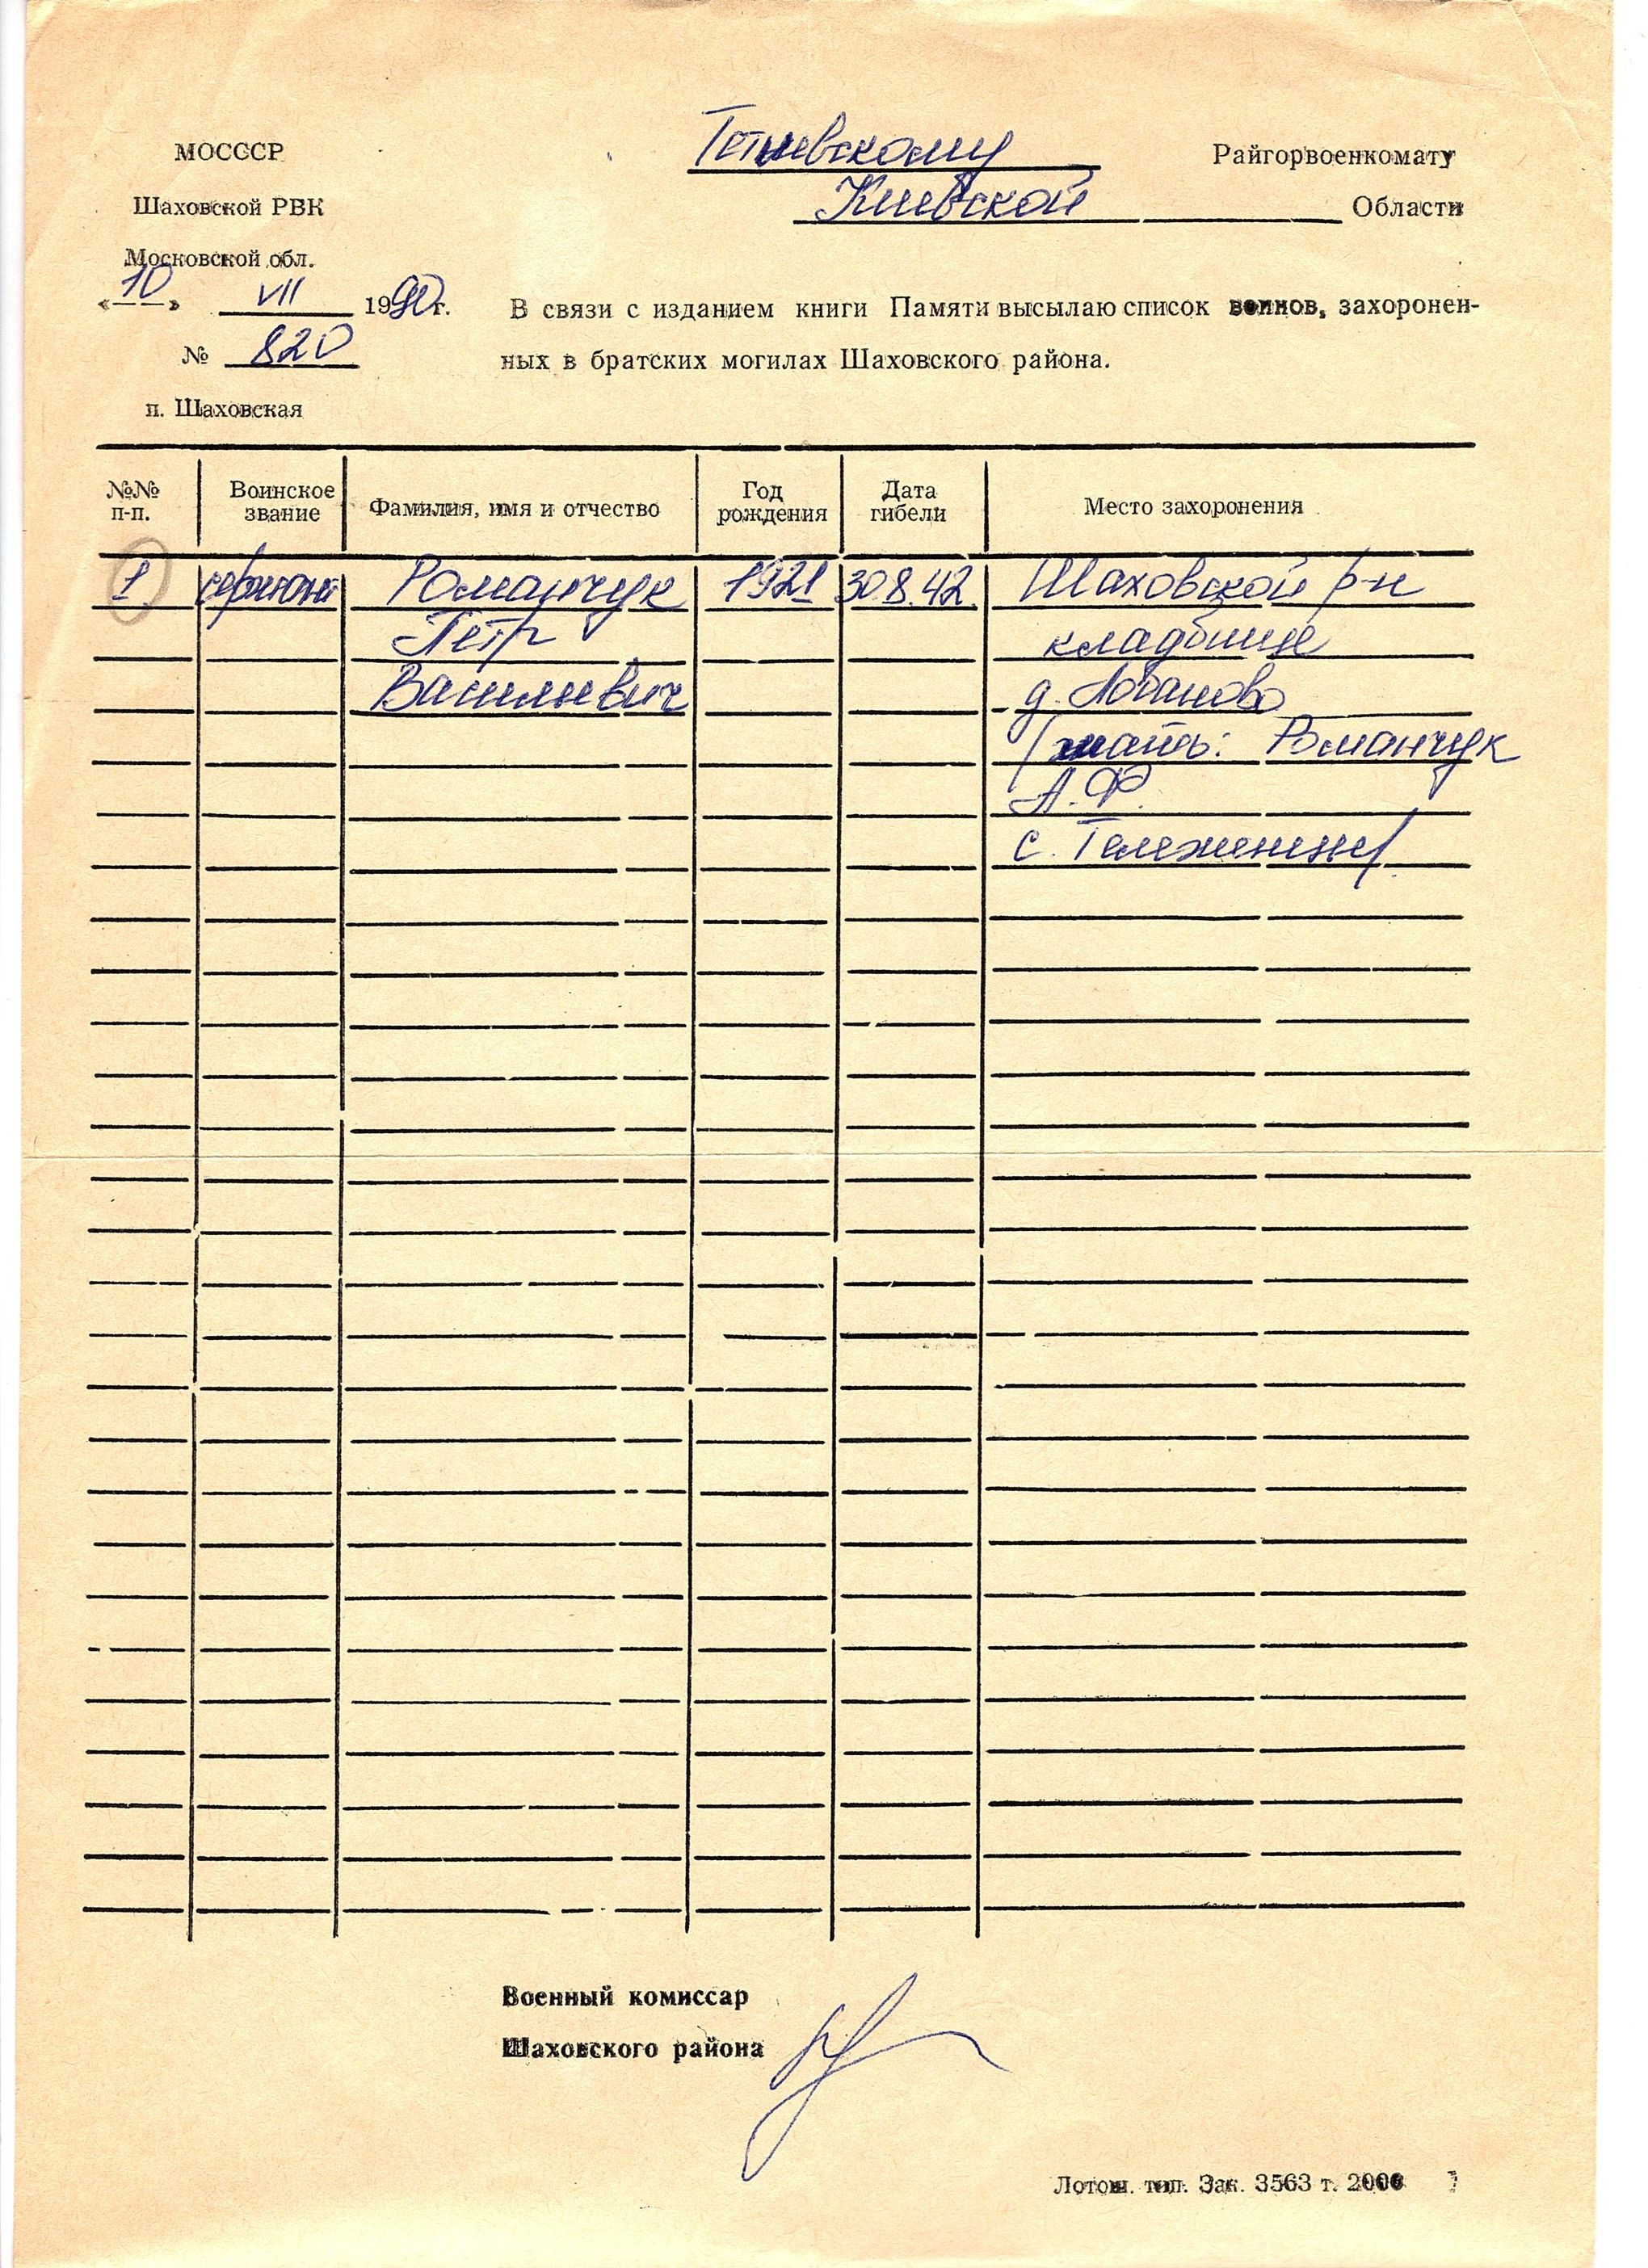 МОСССР
Шаховской РВК
Московской обл.
«10» VII 1990г.
№ 820
п. Шаховская
Тетиевскому Райгорвоенкомату
Киевской Области
В связи с изданием книги Памяти высылаю список воинов, захоронен-
ных в братских могилах Шаховского района.
№№ п-п. Воинское звание Фамилия, имя и отчество Год рождения Дата гибели Место захоронения
1 сержант Романчук 1921 30.8.42. Шаховской р-н
Петр кладбище
Васильевич д. Лобаново
/мать: Романчук
А.Ф.
с. Тележенцы/
Военный комиссар
Шаховского района
Лотош. тип. Зак. 3563 т. 2000